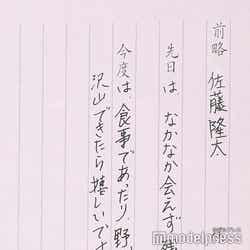 前略
佐藤隆太
先日は なかなか会えず
今度は 食事であったり、野
沢山できたら嬉しいです
modelpress